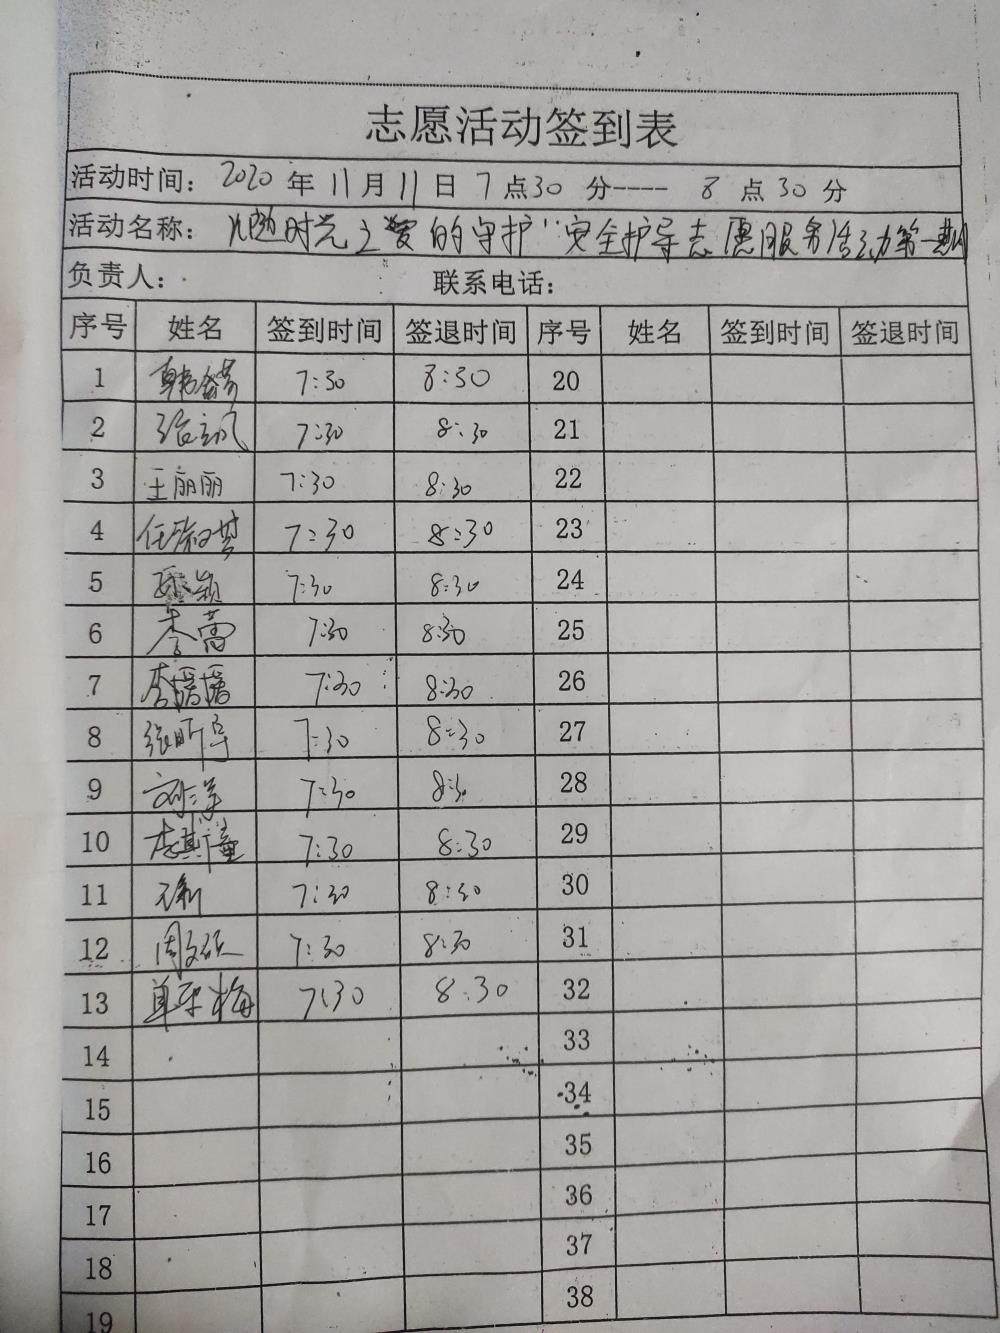 志愿活动签到表
活动时间: 2020 年 11 月 11 日 7 点 30 分---- 8 点 30 分
活动名称: 时光 的守护" 安全护导志愿服务活动第一期
负责人: 联系电话:
序号 姓名 签到时间 签退时间 序号 姓名 签到时间 签退时间
1 7:30 8:30 20
2 7:30 8:30 21
3 王丽丽 7:30 8:30 22
4 7:30 8:30 23
5 7:30 8:30 24
6 7:30 8:30 25
7 李媛媛 7:30 8:30 26
8 7:30 8:30 27
9 7:30 8:30 28
10 李斯童 7:30 8:30 29
11 7:30 8:30 30
12 7:30 8:30 31
13 7:30 8:30 32
14 33
15 34
16 35
17 36
18 37
19 38